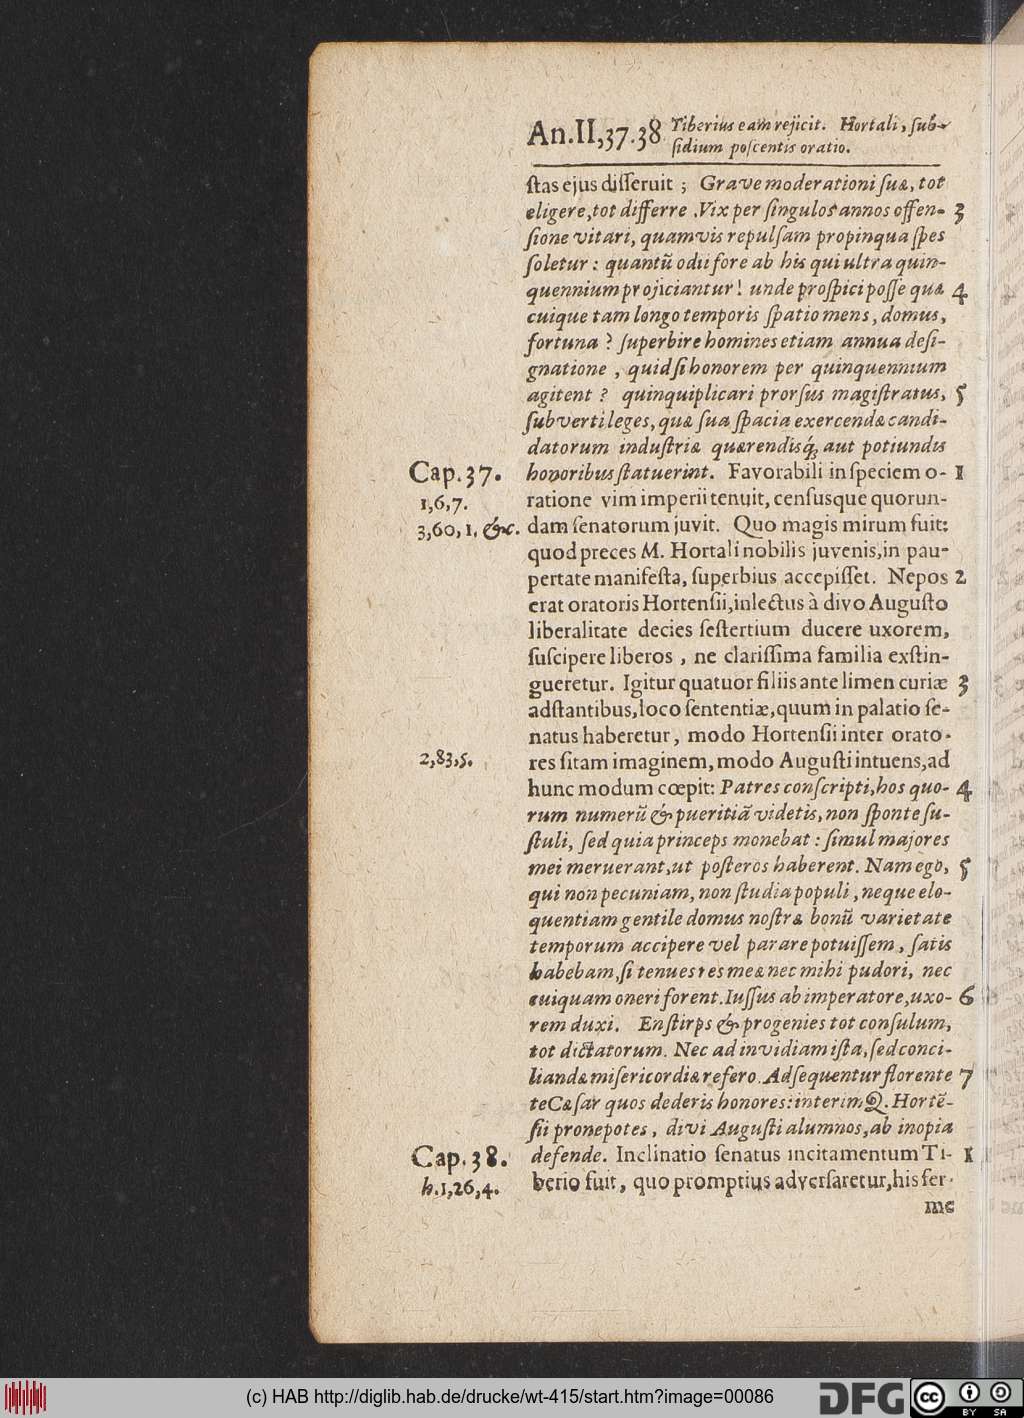 An.II,37.38 Tiberius eam rejicit. Hortali, sub-
sidium poscentis oratio.
ſtas ejus diſſeruit ; Grave moderationi ſuæ, tot
eligere, tot differre . Vix per ſingulos annos offen- 3
ſione vitari, quamvis repulſam propinqua ſpes
ſoletur : quantũ odii fore ab his qui ultra quin-
quennium projiciantur! unde proſpici poſſe quæ 4
cuique tam longo temporis ſpatio mens, domus,
fortuna ? ſuperbire homines etiam annua deſi-
gnatione , quid ſi honorem per quinquennium
agitent ? quinquiplicari prorſus magiſtratus, 5
ſubverti leges, quæ ſua ſpacia exercendæ candi-
datorum induſtriæ quærendisq́; aut potiundis
Cap.37. honoribus ſtatuerint. Favorabili in ſpeciem o- 1
1,6,7. ratione vim imperii tenuit, cenſusque quorun-
3,60,1. &c. dam ſenatorum juvit. Quo magis mirum fuit:
quod preces M. Hortali nobilis juvenis, in pau-
pertate manifeſta, ſuperbius accepiſſet. Nepos 2
erat oratoris Hortenſii, inlectus à divo Auguſto
liberalitate decies ſeſtertium ducere uxorem,
ſuſcipere liberos , ne clariſſima familia exſtin-
gueretur. Igitur quatuor filiis ante limen curiæ 3
adſtantibus, loco ſententiæ, quum in palatio ſe-
natus haberetur, modo Hortenſii inter orato-
2,83,5. res ſitam imaginem, modo Auguſti intuens, ad
hunc modum cœpit: Patres conſcripti, hos quo- 4
rum numerũ & pueritiã videtis, non ſponte ſu-
ſtuli, ſed quia princeps monebat : ſimul majores
mei meruerant, ut poſteros haberent. Nam ego, 5
qui non pecuniam, non ſtudia populi, neque elo-
quentiam gentile domus noſtræ bonũ varietate
temporum accipere vel parare potuiſſem, ſatis
habebam, ſi tenues res meæ nec mihi pudori, nec
cuiquam oneri forent. Iuſſus ab imperatore, uxo- 6
rem duxi. En ſtirps & progenies tot conſulum,
tot dictatorum. Nec ad invidiam iſta, ſed conci-
liandæ miſericordiæ refero. Adſequentur florente 7
te Cæſar quos dederis honores: interim Q. Hortẽ-
ſii pronepotes, divi Auguſti alumnos, ab inopia
Cap.38. defende. Inclinatio ſenatus incitamentum Ti- 1
h.1,26,4. berio fuit, quo promptius adverſaretur, his fer-
me
(c) HAB http://diglib.hab.de/drucke/wt-415/start.htm?image=00086
DFG
cc
BY SA